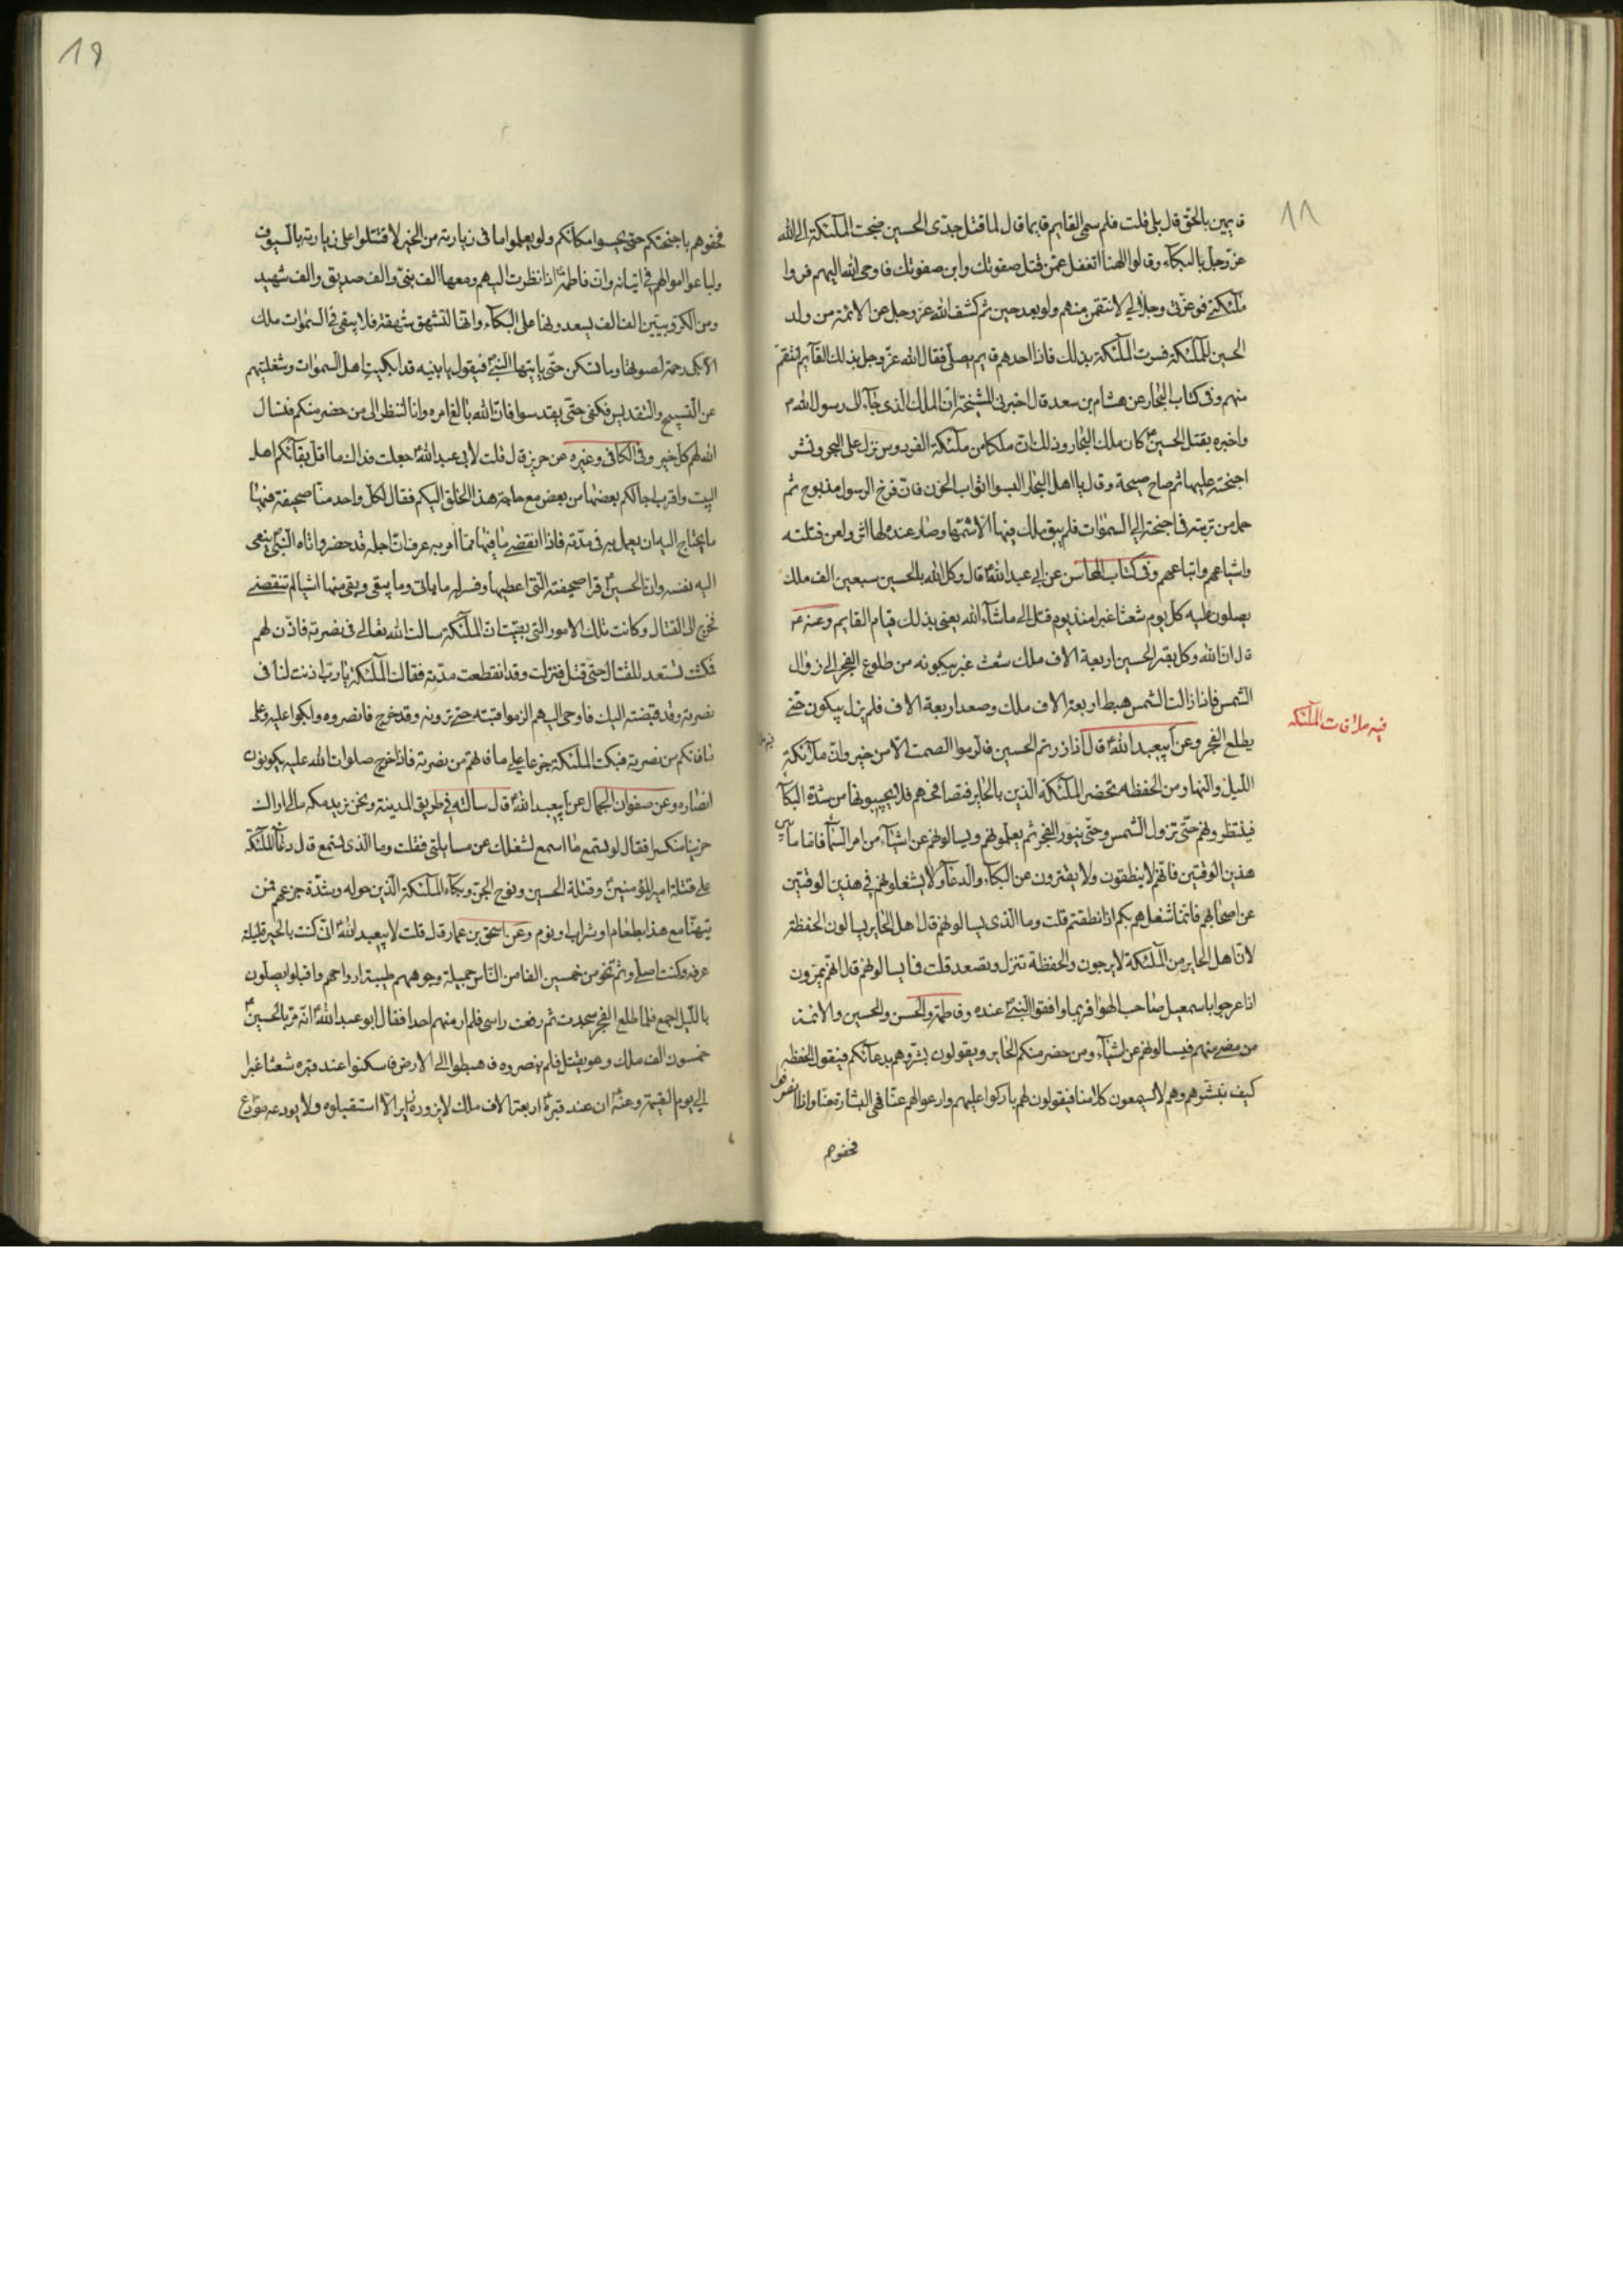 ١٨
قايمين بالحق قال بلى قلت فلم سمى القايم قايما قال لما قتل جدى الحسين ضجت الملئكة الى الله
عزّ وجل بالبكآء وقالوا الهنا اتغفل عمّن قتل صفوتك وابن صفوتك فاوحى الله اليهم قروا
ملئكتى فوعزّتى وجلالى لانتقمن منهم ولو بعد حين ثم كشف الله عز وجل عن الائمة من ولد
الحسين للملئكة فسرت الملئكة بذلك فاذا احدهم قايم يصلّى فقال الله عزّ وجل بذلك القآيم انتقم
منهم وفى كتاب البحار عن هشام بن سعد قال اخبرنى المشيخة انّ الملك الذى جآء الى رسول الله
واخبره بقتل الحسين كان ملك البحار وذلك ان ملكا من ملئكة الفردوس نزل على البحر ونشر
اجنحته عليها ثم صاح صيحة وقال يا اهل البحار البسوا اثواب الحزن فانّ فرخ الرسول مذبوح ثم
حمل من تربته فى اجنحته الى السموات فلم يبق ملك فيها الا شمّها وصار عنده لها اثر ولعن قتلته
واشياعهم واتباعهم وفى كتاب المحاسن عن ابى عبد الله قال وكل الله بالحسين سبعين الف ملك
يصلون عليه كل يوم شعثا غبرا منذ يوم قتل الى ماشآء الله يعنى بذلك قيام القايم وعنه
قال ان الله وكل بقبر الحسين اربعة الاف ملك شعث غبر يبكونه من طلوع الفجر الى زوال
الشمس فاذا زالت الشمس هبط اربعة الاف ملك وصعد اربعة الاف فلم يزل يبكون حتى
فيه ملاقات الملئكه
يطلع الفجر وعن ابيعبد الله قال اذا زرتم الحسين فالزموا الصمت الا من خير وانّ ملآئكة
الليل والنهار من الحفظه تحضر الملئكة الذين بالحاير فتصافحهم فلا يجيبونها من شدّة البكآ
فينتظرونهم حتّى تزول الشمس وحتّى ينور الفجر ثم يعلمونهم ويسالونهم عن اشيآء من امر السمآ فاما ما بين
هذين الوقتين فانّهم لا ينطقون ولا يفترون عن البكآء والدعآء ولا يشغلونهم فى هذين الوقتين
عن اصحابهم فانما شغلهم بكم اذا نطقتم قلت وما الذى يسالونهم قال اهل الحاير يسالون الحفظة
لانّ اهل الحاير من الملئكة لا يبرحون والحفظة تنزل وتصعد قلت فما يسالونهم قال انهم يمرّون
اذا عرجوا باسمعيل صاحب الهوا فربما وافقوا النبى عنده وفاطمة والحسن والحسين والائمة
من مضى منهم فيسالونهم عن اشيآء ومن حضر منكم الحاير ويقولون بشّروهم بدعآئكم فيقول الحفظه
كيف نبشّرهم وهم لا يسمعون كلامنا فيقولون لهم باركوا عليهم وادعوا لهم عنّا فهى البشارة منّا واذا انصرفوا
فحفوهم
١٩
فحفوهم باجنحتكم حتى يحسوا مكانكم ولو يعلموا ما فى زيارته من الخير لاقتتلوا على زيارته بالسيوف
ولباعوا اموالهم فى اتيانه وانّ فاطمة اذا نظرت اليهم ومعها الف نبىّ والف صديق والف شهيد
ومن الكرّوبيّين الف الف يسعدونها على البكآء وانها لتشهق شهقة فلا يبقى فى السموات ملك
الا بكى رحمة لصوتها وما تسكن حتّى ياتيها النبىّ فيقول يا بنيه قد ابكيت اهل السموات وشغلتيهم
عن التسبيح والتقديس فكفى حتّى يقدسوا فانّ الله بالغ امره وانها لتنظر الى من حضر منكم فتسال
الله لهم كل خير وفى الكافى وغيره عن حريز قال قلت لابى عبد الله جعلت فداك ما اقل بقآئكم اهل
البيت واقرب اجالكم بعضها من بعض مع حاجة هذا الخلق اليكم فقال لكل واحد منّا صحيفة فيها
ما يحتاج اليه ان يعمل به فى مدّته فاذا انقضى ما فيها ممّا امر به عرف انّ اجله قد حضر واتاه النبى ينعى
اليه نفسه وانّ الحسين قرا صحيفته التى اعطيها وفسر له ما ياتى وما يبقى وبقى منها اشيا لم تنقضى
فخرج الى القتال وكانت تلك الامور التى بقيت انّ الملئكة سالت الله تعالى فى نصرته فاذن لهم
فمكثت تستعد للقتال حتّى قتل فنزلت وقد انقطعت مدّته فقالت الملئكة يا ربّ اذنت لنا فى
نصرته وقد قبضته اليك فاوحى اليهم الزموا قبته حتّى ترونه وقد خرج فانصروه وابكوا عليه وعلى
ما فاتكم من نصرته فبكت الملئكة جزعا على ما فاتهم من نصرته فاذا خرج صلوات الله عليه يكونون
انصاره وعن صفوان الجمال عن ابيعبد الله قال سالته فى طريق المدينة ونحن نريد مكه مالى اراك
حزينا منكسرا فقال لو تسمع ما اسمع لشغلك عن مسايلتى فقلت وما الذى تسمع قال دعآء الملئكة
على قتلة امير المؤمنين وقتلة الحسين ونوح الجن وبكآء الملئكة الّذين حوله وشدّة جزعهم فمن
يتهنّا مع هذا بطعام او شراب او نوم وعن اسحق بن عمار قال قلت لابيعبد الله انى كنت بالحير ليلة
عرفه وكنت اصلى وثم نحو من خمسين الفا من النّاس جميلة وجوههم طيبة ارواحهم واقبلوا يصلون
بالليل اجمع فلمّا طلع الفجر سجدت ثم رفعت راسى فلم ار منهم احدا فقال ابو عبد الله انّه مرّ بالحسين
خمسون الف ملك وهو يقتل فلم ينصروه فهبطوا الى الارض فاسكنوا عند قبره شعثا غبرا
الى يوم القيمة وعنه ان عند قبره اربعة الاف ملك لا يزوره زاير الا استقبلوه ولا يودعه مودّع